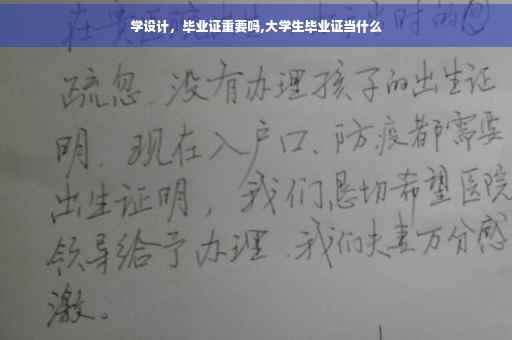 学设计，毕业证重要吗,大学生毕业证当什么
疏忽、没有办理孩子的出生证
明、现在入户口、防疫都需要
出生证明，我们恳切希望医院
领导给予办理、我们夫妻万分感
激。